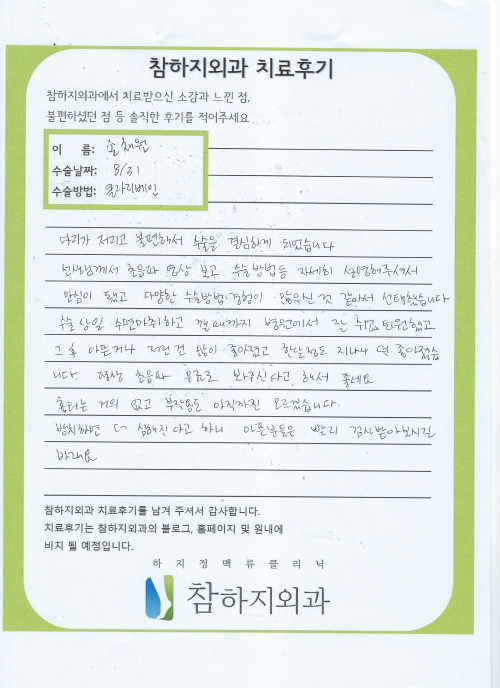 참하지외과 치료후기
참하지외과에서 치료받으신 소감과 느낀 점,
불편하셨던 점 등 솔직한 후기를 적어주세요
이 름: 손채원
수술날짜: 8/31
수술방법: 클라리베인
다리가 저리고 불편해서 수술을 결심하게 되었습니다
선생님께서 초음파 영상 보고 수술방법등 자세히 설명해주셔서
안심이 됐고 다양한 수술방법 경험이 많으신 것 같아서 선택했습니다
수술 당일 수면마취하고 깰 때까지 병원에서 잘 쉬고 퇴원했고
그 후 아픈거나 저린 건 많이 좋아졌고 한달정도 지나니 더 좋아졌습
니다. 평생 초음파 무료로 봐주신다고 해서 좋네요
흉터는 거의 없고 부작용도 아직까진 모르겠습니다.
방치하면 더 심해진다고 하니 아픈분들은 빨리 검사받아보시길
바래요
참하지외과 치료후기를 남겨 주셔서 감사합니다.
치료후기는 참하지외과의 블로그, 홈페이지 및 원내에
비치 될 예정입니다.
하지정맥류클리닉
참하지외과